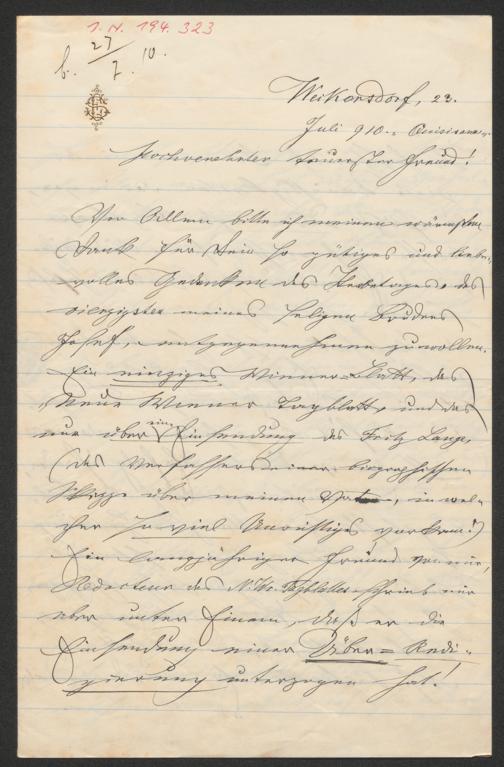 I. N. 194.323
b. 27/7. 10.
Weikersdorf, 23.
Juli 910.
Hochverehrter teuerster Freund!
Vor Allem bitte ich meinen wärmsten
Dank für Dein so gütiges und liebe-
volles Gedenken des Sterbetages, des
vierzigsten meines seligen Bruders
Josef, entgegennehmen zu wollen.
Ein einziges Wiener-Blatt, das
Neue Wiener Tagblatt, und das
nur über eine Einsendung des Fritz Lange,
(des Verfassers einer biographischen
Skizze über meinen Vater, in wel-
cher so viel Unrichtiges vorkam!)
Ein langjähriger Freund von mir,
Redacteur des N. W. Tagblattes schrieb mir
aber unter Einem, daß er die
Einsendung einer Über=Redi-
gierung unterzogen hat!